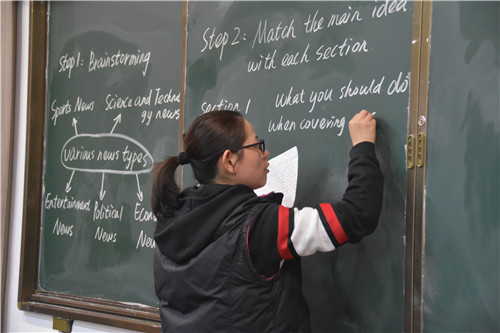 Step 1: Brainstorming
Sports News
Science and Techno
gy news
various news types
Entertainment
News
Political
News
Econo
News
Step 2: Match the main idea
with each section.
Section 1
What you should do
when covering